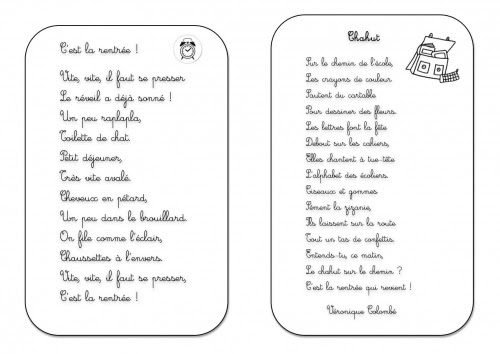 C'est la rentrée !
Vite, vite, il faut se presser
Le réveil a déjà sonné !
Un peu raplapla,
Toilette de chat.
Petit déjeuner,
Très vite avalé.
Cheveux en pétard,
Un peu dans le brouillard.
On file comme l'éclair,
Chaussettes à l'envers.
Vite, vite, il faut se presser,
C'est la rentrée !
Chahut
Sur le chemin de l'école,
Les crayons de couleur
Sautent du cartable
Pour dessiner des fleurs.
Les lettres font la fête
Debout sur les cahiers,
Elles chantent à tue-tête
L'alphabet des écoliers.
Ciseaux et gommes
Sèment la zizanie,
Ils laissent sur la route
Tout un tas de confettis.
Entends-tu, ce matin,
Le chahut sur le chemin ?
C'est la rentrée qui revient !
Véronique Colombé